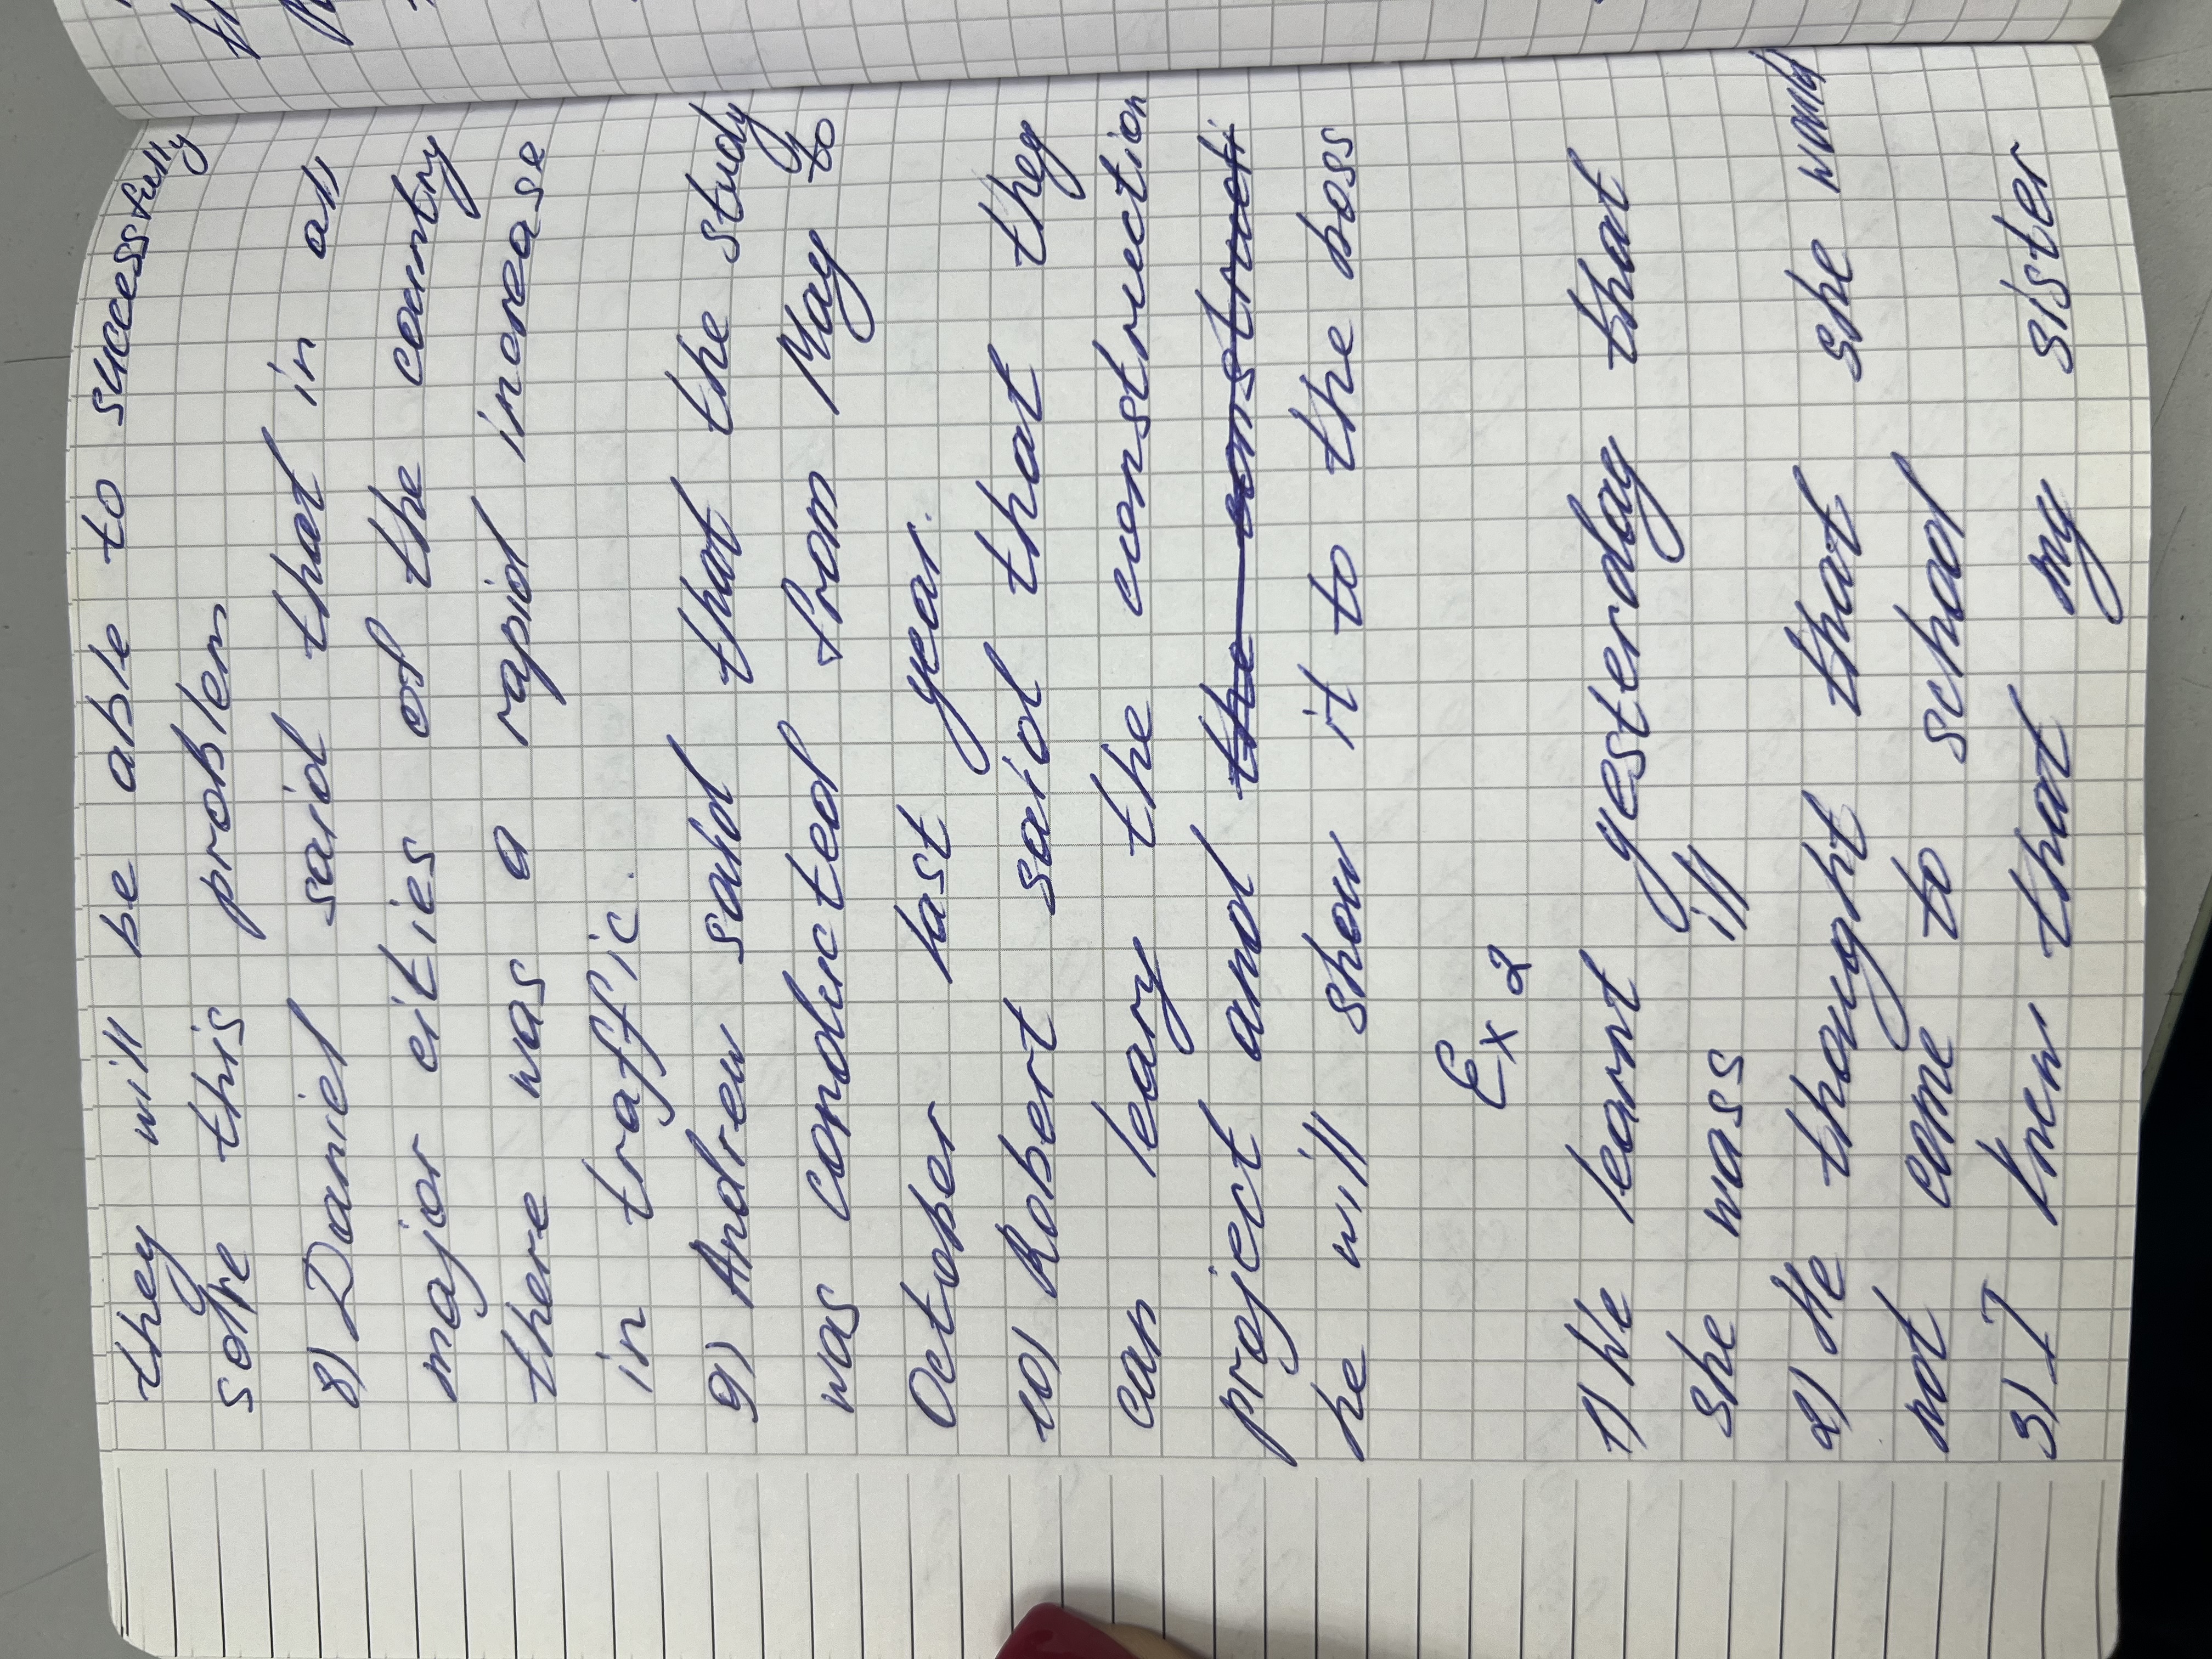 they will be able to successfully
solve this problem
8) Daniel said that in all
major cities of the country
there was a rapid increase
in traffic.
9) Andrew said that the study
was conducted from May to
October last year.
10) Robert said that they
can leary the construction
project and the constructi
he will show it to the boss
Ex 2
1) We learnt yesterday that
she was ill
2) He thought that she would
not come to school
3) I knew that my sister